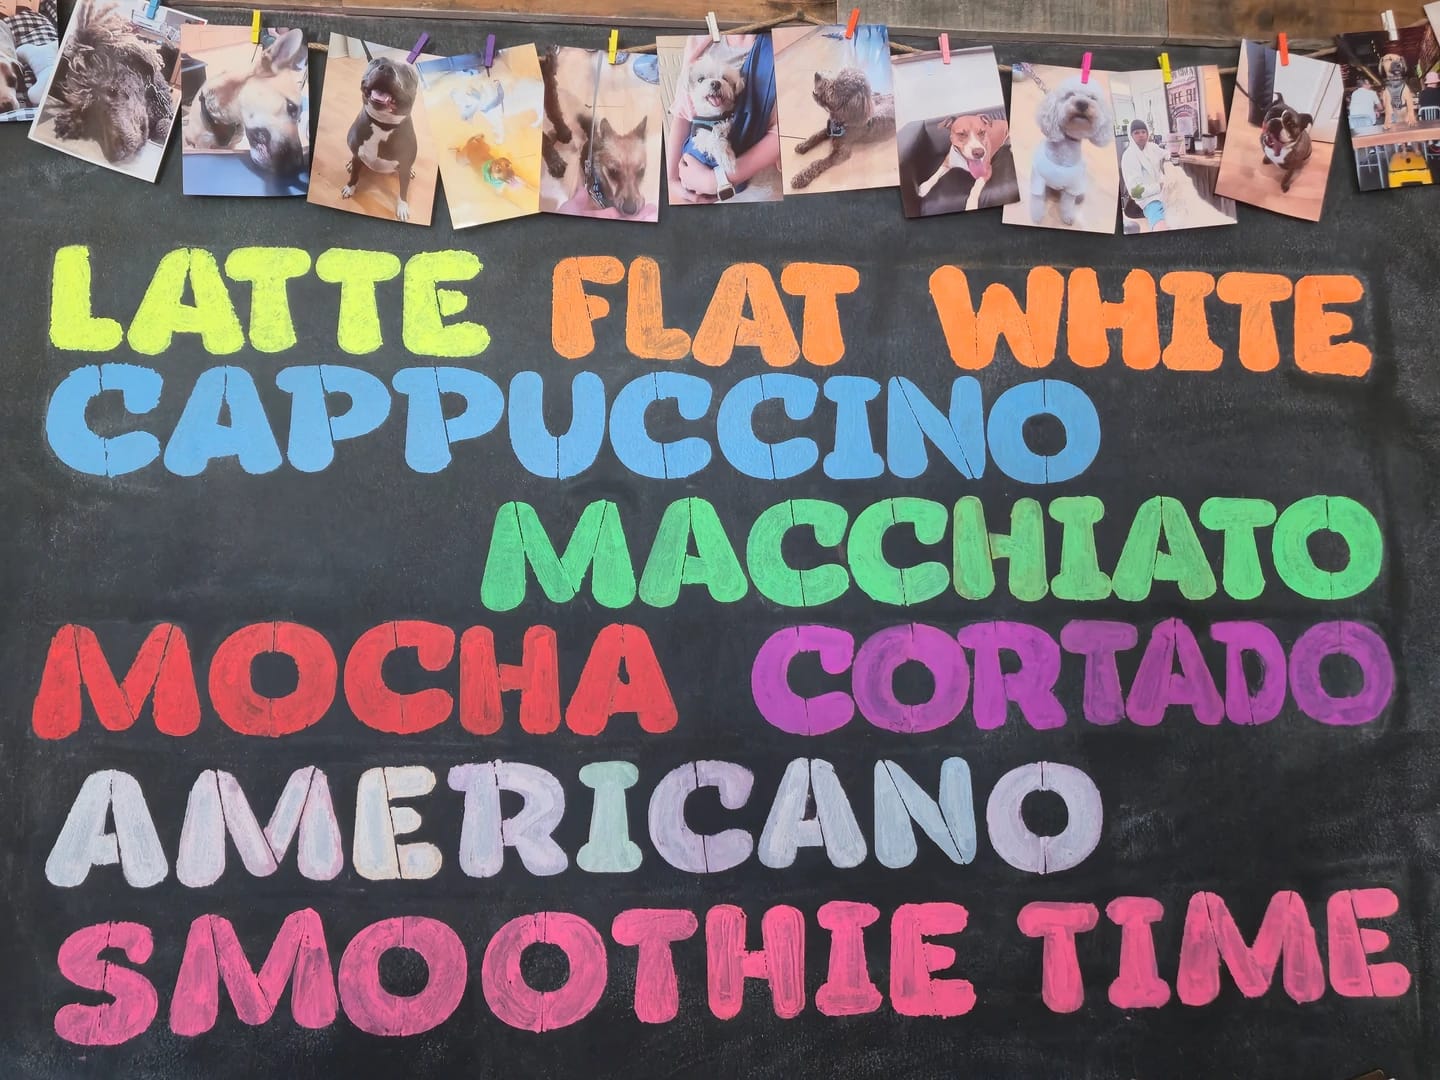 LATTE FLAT WHITE
CAPPUCCINO
MACCHIATO
MOCHA CORTADO
AMERICANO
SMOOTHIE TIME